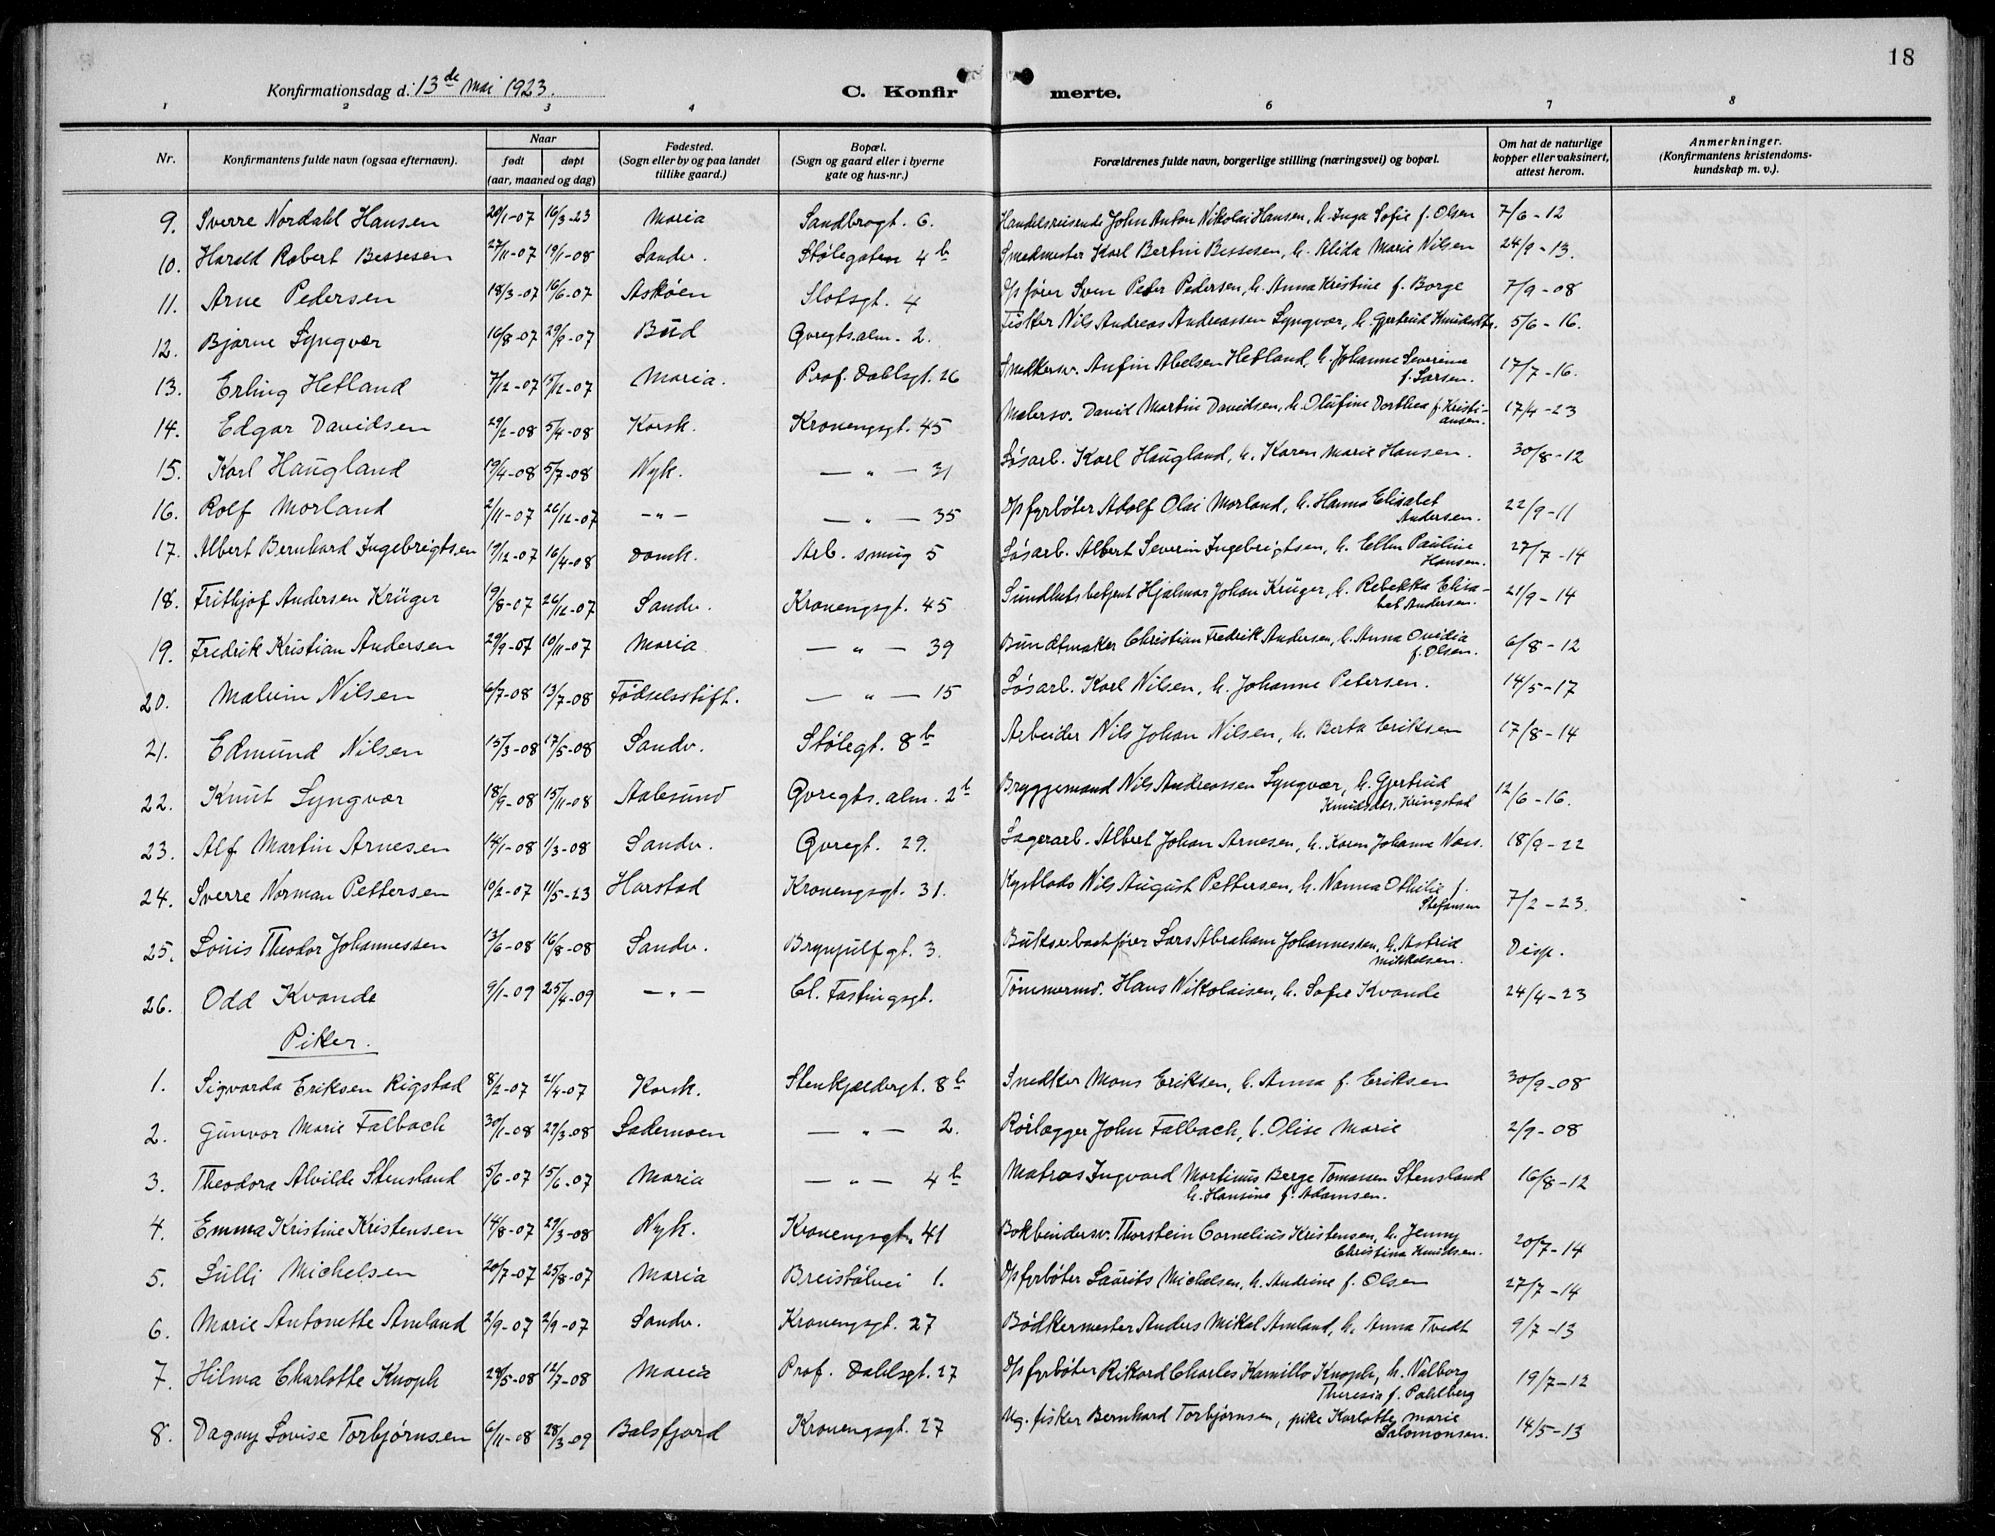 18
Konfirmationsdag d. 13de Mai 1923.
C. Konfirmerte.
1 2 3 4 5 6 7 8
Nr. Konfirmantens fulde navn (ogsaa efternavn). Naar født døpt (aar, maaned og dag) Fødested. (Sogn eller by og paa landet tillike gaard.) Bopæl. (Sogn og gaard eller i byerne gate og hus-nr.) Forældrenes fulde navn, borgerlige stilling (næringsvei) og bopæl. Om hat de naturlige kopper eller vaksinert, attest herom. Anmerkninger. (Konfirmantens kristendomskundskap m. v.).
9. Sverre Nordahl Hansen 20/1-07 16/3-23 Maria Sandbrogt. 6. Handelsreisende John Anton Nikolai Hansen, h. Inga Sofie f. Olsen 7/6-12
10. Harald Robert Bessesen 27/11-07 19/1-08 Sandv. Stølegaten 4b Smedmester Karl Bertin Bessesen, h. Alida Marie Nilsen 24/9-13.
11. Arne Pedersen 18/3-07 16/6-07 Askøen Slotsgt. 4 Opfører Sven Peder Pedersen, h. Anna Kristine f. Borge 7/9-08
12. Bjarne Lyngvær 16/8-07 29/9-07 Bud Qvregts.alm. 2. Fisker Nils Andreas Andreassen Lyngvær, h. Gjertrud Knudsdtr. 5/6-16.
13. Erling Hetland 7/12-07 15/12-07 Maria. Prof. Dahlsgt. 26 Snedkersv. Anfin Abelsen Hetland, h. Johanne Severina f. Larsen. 17/7-16.
14. Edgar Davidsen 29/2-08 5/4-08 Korsk. Kronengsgt. 45 Malersv. David Martin Davidsen, h. Olufine Dorthea f. Kristiansen. 17/4-23
15. Karl Haugland 19/4-08 5/7-08 Nyk. — " — 31 Løsarb. Karl Haugland, h. Karen Marie Hansen. 30/8-12
16. Rolf Morland 2/11-07 26/12-07 — " — — " — 35 Opfyrbøter Adolf Olai Morland, h. Hanna Elisabet Andersen. 22/9-11
17. Albert Bernhard Ingebrigtsen 19/12-07 16/4-08 Domk. Arb. smug 5 Løsarb. Albert Severin Ingebrigtsen, h. Ellen Pauline Hansen. 27/7-14
18. Frithjof Andersen Krüger 19/8-07 26/12-07 Sandv. Kronengsgt. 45 Sundhetsbetjent Hjalmar Johan Krüger, h. Rebekka Elisabet Andersen. 21/9-14
19. Fredrik Kristian Andersen 29/9-07 10/11-07 Maria — " — 39 Bundtmaker Christian Fredrik Andersen, h. Anna Ovidia f. Olsen. 6/8-12
20. Malvin Nilsen 6/7-08 13/7-08 Fødselsstift. — " — 15 Løsarb. Karl Nilsen, h. Johanne Petersen. 14/5-17
21. Edmund Nilsen 15/3-08 17/5-08 Sandv. Stølegt. 8b Arbeider Nils Johan Nilsen, h. Berta Eriksen 17/8-14
22. Knut Lyngvær 18/9-08 15/11-08 Aalesund Qvregts.alm. 2b Bryggemand Nils Andreassen Lyngvær, h. Gjertrud Knudsdtr. Kringstad 12/6-16.
23. Alf Martin Arnesen 14/1-08 1/3-08 Sandv. Qvregt. 29. Lagerarb. Albert Johan Arnesen, h. Karen Johanne Næs. 18/9-22
24. Sverre Norman Pettersen 10/2-07 11/5-23 Harstad Kronengsgt. 31. Kystlods Nils August Pettersen, h. Nanna Othilie f. Stefansen 7/2-23.
25. Louis Theodor Johannessen 13/6-08 16/8-08 Sandv. Brynjulfgt. 3. Bukserbaatfører Lars Abraham Johannessen, h. Astrid Mikkelsen. Disp.
26. Odd Kvande 9/1-09 25/4-09 — " — Cl. Fastingsgt. Tømmermd. Hans Nikolaisen, h. Sofie Kvande 24/4-23
Piker.
1. Sigvarda Eriksen Rigstad 8/2-07 21/4-07 Korsk. Stenkjældergt. 8b Snedker Mons Eriksen, h. Anna f. Eriksen 30/9-08
2. Gunvor Marie Falbach 30/1-08 29/3-08 Lademoen — " — 2. Rørlægger John Falbach, h. Olise Marie 2/9-08
3. Theodora Alvilde Stensland 5/6-07 15/6-07 Maria — " — 4b Matros Ingvard Martinus Berge Tomassen Stensland h. Hansine f. Adamsen. 16/8-12
4. Emma Kristine Kristensen 14/8-07 29/3-08 Nyk. Kronengsgt. 41 Bokbindersv. Thorstein Cornelius Kristensen, h. Jenny Christina Knudsen. 20/7-14
5. Lulli Michelsen 20/7-07 25/8-07 Maria Breistølvei 1. Opfyrbøter Laurits Michelsen, h. Andrine f. Olsen 27/7-14
6. Marie Antonette Amland 2/9-07 2/9-07 Sandv. Kronengsgt. 27 Bødkermester Anders Mikal Amland, h. Anna Tvedt 9/7-13
7. Hilma Charlotte Knoph 28/5-08 12/7-08 Maria Prof. Dahlsgt. 27 Opfyrbøter Rikkard Charles Kamillo Knoph, h. Valborg Theresia f. Pahlberg 19/7-12
8. Dagny Lovise Torbjørnsen 6/11-08 28/3-09 Balsfjord Kronengsgt. 27 Ug. fisker Bernhard Torbjørnsen, pike Karlotte Marie Salomonsen. 14/5-13